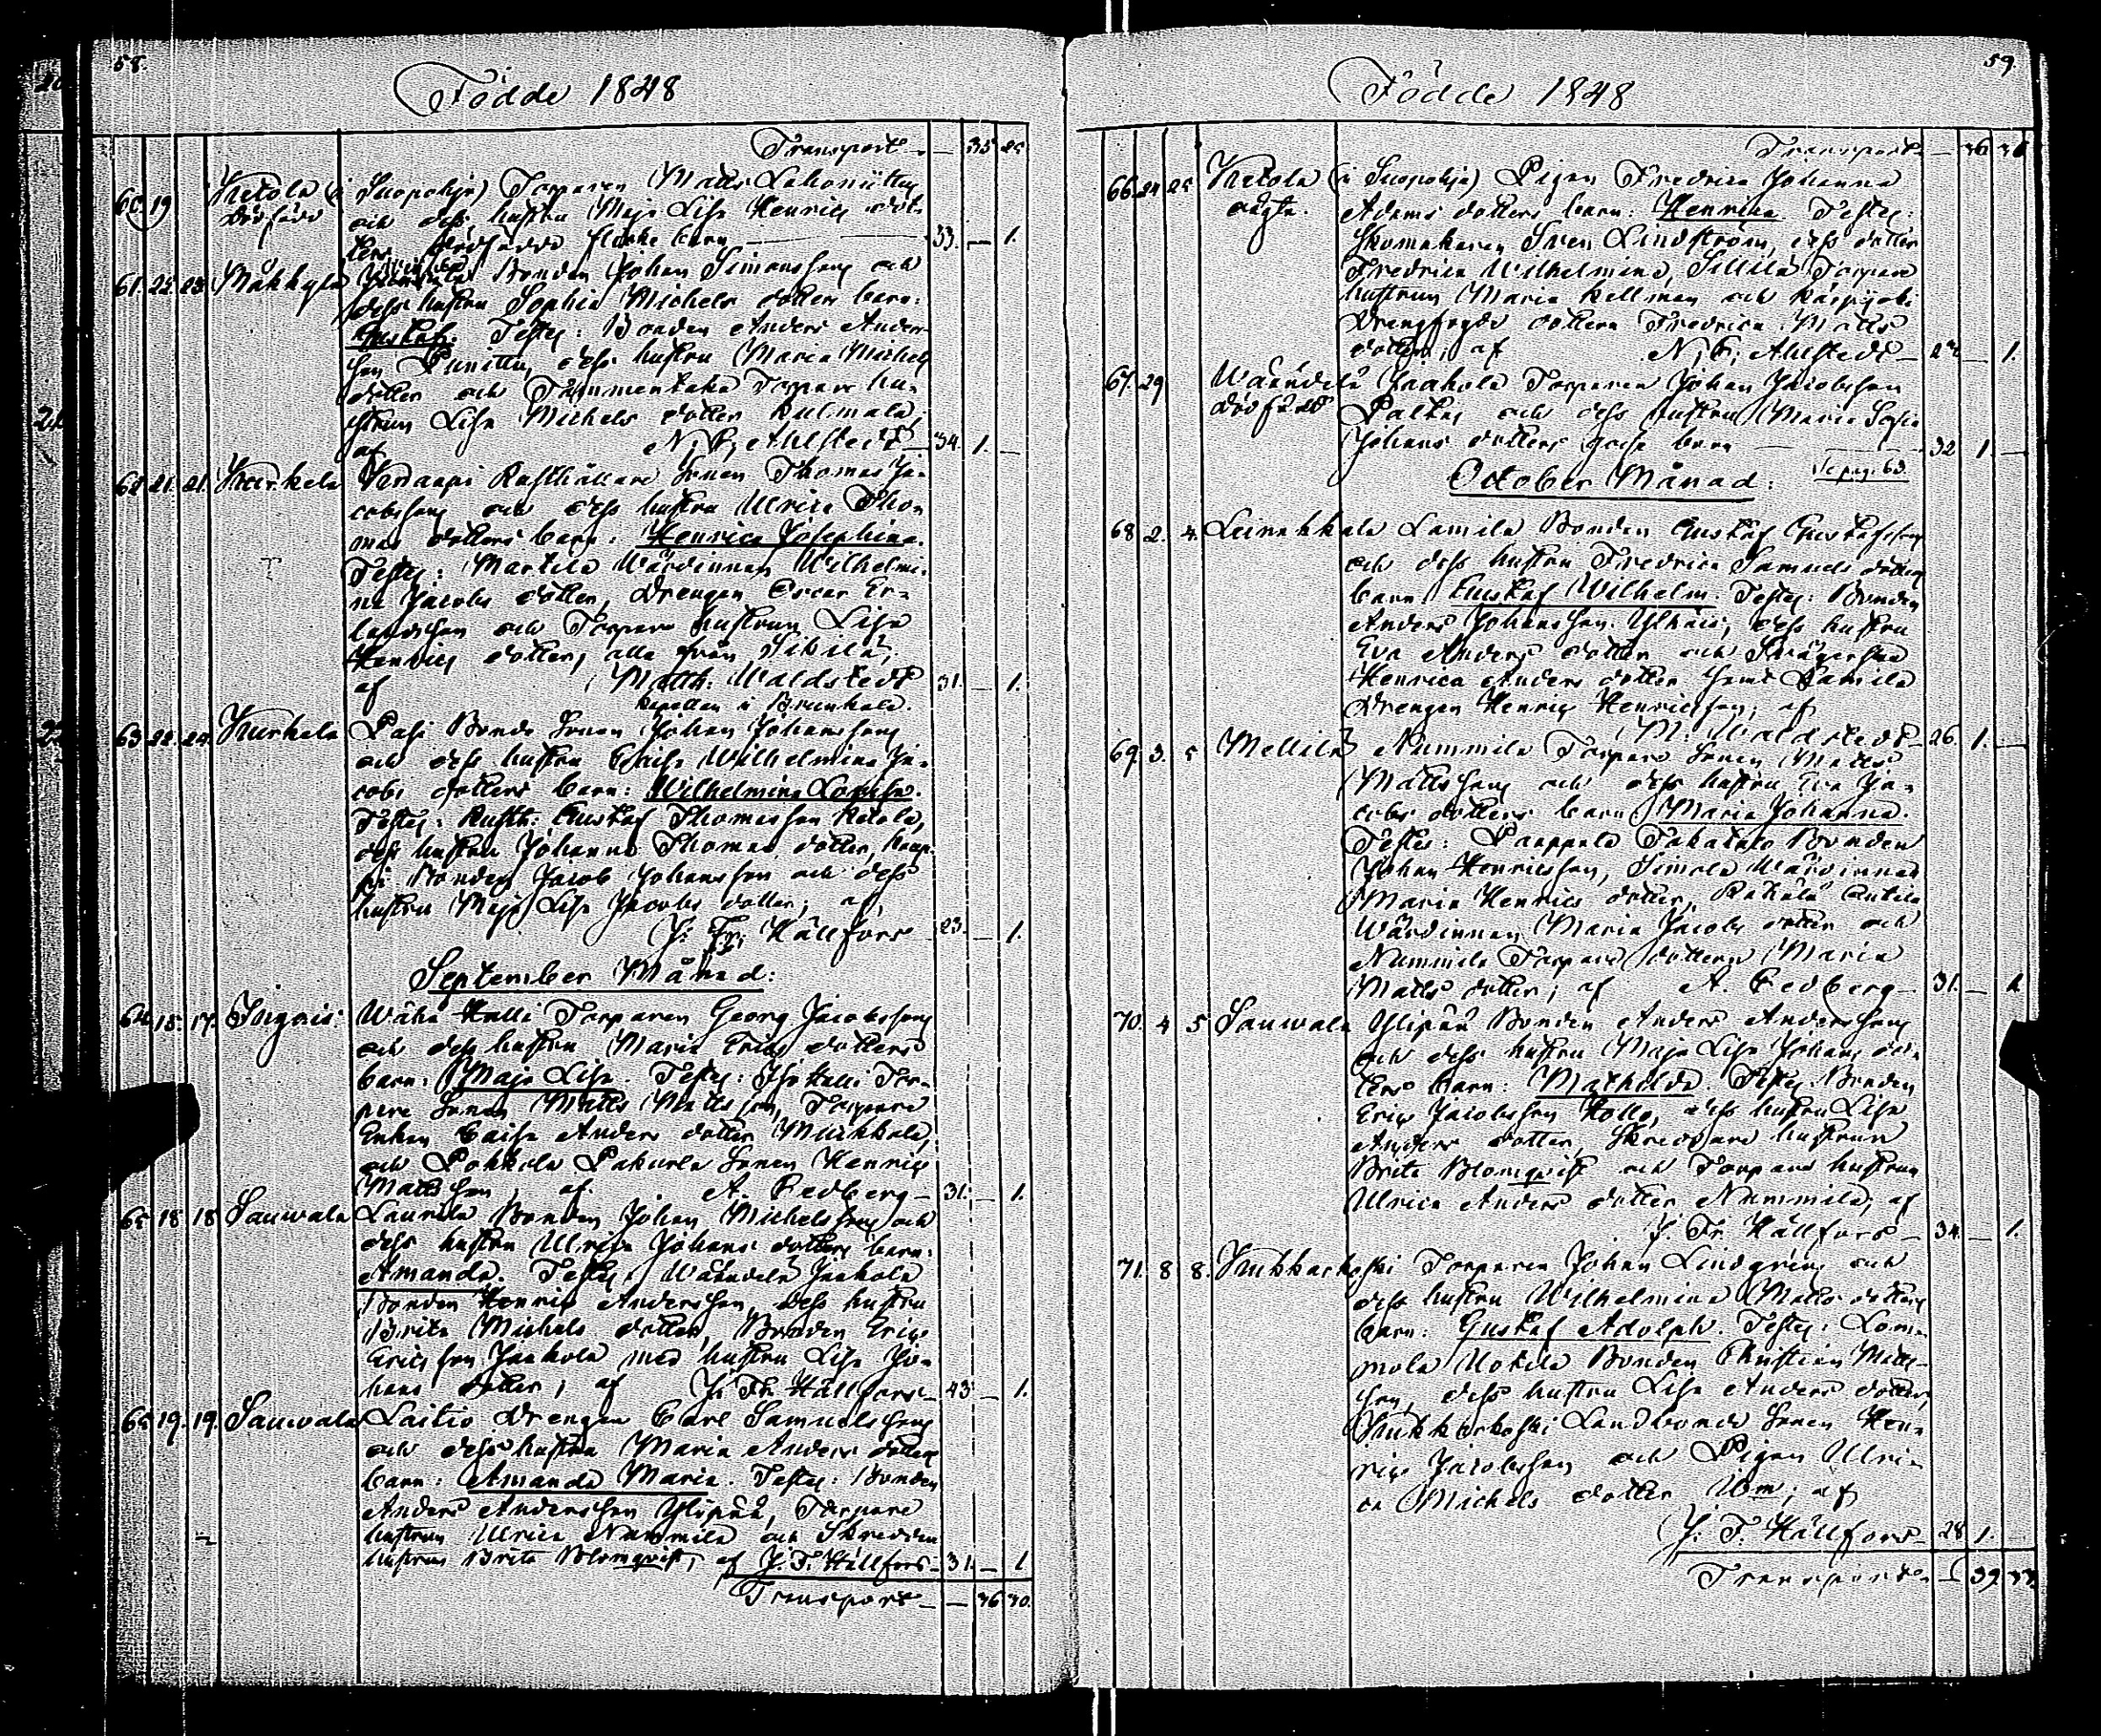 58.
Födde 1848
Transport — 35
60 19 Ketola (i Suopohja) Torparen Matts
dödfödd och dess hustru Maja Lisa Henrics dot-
ters dödfödde flicke barn — 33. — 1.
61. 22 23 Bonden Johan Simonsson och
dess hustru Sophia Michels dotters barn:
Gustaf. Testes: Bonden Anders Anders-
son dess hustru Maria Michels
dotter och Torpare hu-
strun Lisa Michels dotter
af N. C. Ahlstedt 34. 1. —
62 21. 21. Kurkela Rusthållare Sonen Thomas Ja-
cobsson och dess hustru Ulrica Tho-
mas dotters barn: Henrica Josephina.
Testes: Martila Wärdinnan Wilhelmi-
na Jacobs dotter, Drengen Oscar Er-
landsson och Torpare hustrun Lisa
Henrics dotter, alla från
af Matth. Waldstedt 31. — 1.
Kapellan i Brunkala.
63 22. 24. Kurkela Pasi Bonde Sonen Johan Johansson
och dess hustru Wilhelmina Ja-
cobs dotters barn: Wilhelmina Lovisa.
Testes: Rusth: Gustaf Thomasson Ketola,
dess hustru Johanna Thomas dotter,
Bonden Jacob Johansson och dess
hustru Maja Lisa Jacobs dotter, af
J. Fr. Hällfors 23. — 1.
September Månad:
64 15. 17. Ingois Wähä Halli Torparen Georg Jacobsson
och dess hustru Maria Erics dotters
barn: Maja Lisa. Testes: Iso Halli Tor-
pare Sonen Matts Mattsson, Torpare
Enkan Caisa Anders dotter
och Sonen Henric
Mattsson, af A. Cedberg — 31. — 1.
65 18 18 Sauwala Laurila Bonden Johan Michelsson och
dess hustru Ulrica Johans dotters barn:
Amanda. Testes: Wäändelä Jaakola
Bonden Henric Andersson, dess hustru
Brita Michels dotter, Bonden Eric
Ericsson Jaakola med hustru Lisa Jo-
hans dotter, af J. Fr. Hällfors — 43 — 1.
65 19. 19. Sauwala Laitio Drengen Carl Samuelsson
och dess hustru Maria Anders dotters
barn: Amanda Maria. Testes: Bonden
Anders Andersson Ylipää, Torpare
hustrun Ulrica Nummila och
hustrun Brita Blomqvist, af J. F. Hällfors — 31. — 1
Transport — — 36 30.
59.
Födde 1848
Transport — 36 30
66 24 25 Ketola (i Suopohja) Pigan Fredrica Johanna
oägta. Adams dotters barn: Henrica. Testes:
Skomakaren Sven Lindström, dess dotter
Fredrica Wilhelmina, Sillilä Torpare
hustrun Maria Hellman och
dottern Fredrica Matts
dotter, af N. C. Ahlstedt — — 1.
67. 29 Wäändelä Jaakola Torparen Johan Jacobsson
dödfödd och dess hustru Maria Sofia
Johans dotters gosse barn — 32 1. —
Se pag. 63.
October Månad:
68 2. 4. Lamila Bonden Gustaf Gustafsson
och dess hustru Fredrica Samuels dotters
barn Gustaf Wilhelm. Testes: Bonden
Anders Johansson Ylhäis, dess hustru
Eva Anders dotter och
Henrica Anders dotter samt Lamila
Drengen Henric Henricsson, af
M. Waldstedt — 26. 1. —
69. 3. 5 Mellilä Nummila Torpare Sonen Matts
Mattsson och dess hustru Eva Ja-
cobs dotters barn: Maria Johanna.
Testes: Bonden
Johan Henricsson, Simola Wärdinnan
Maria Henrics dotter,
Wärdinnan Maria Jacobs dotter och
Nummila Torpare dottern Maria
Matts dotter, af A. Cedberg — 31. — 1
70. 4 5 Sauwala Ylipää Bonden Anders Andersson
och dess hustru Maja Lisa Johans dot-
ters barn: Mathilda. Testes: Bonden
Eric Jacobsson dess hustru Lisa
Anders dotter, Skreddare hustrun
Brita Blomqvist och Torpare hustrun
Ulrica Anders dotter Nummila, af
J. Fr. Hällfors — 34. — 1.
71. 8 8. Kukkarkoski Torparen Johan Lindgrén och
dess hustru Wilhelmina Matts dotters
barn: Gustaf Adolph. Testes: Lom-
mola Uotila Bonden Christian Matts-
son, dess hustru Lisa Anders dotter,
Kukkarkoski Landbonde Sonen Hen-
ric Jacobsson och Pigan Ulri-
ca Michels dotter; af
J. F. Hällfors — 28 1. —
Transport — — 39 33.